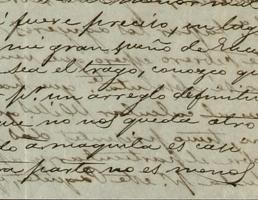 fuere preciso, en lug
mi gran sueño de
sea el trago, conozco q
pr. un arreglo definiti
que no nos queda otro
lo a maquila es cas
ra parte no es menos